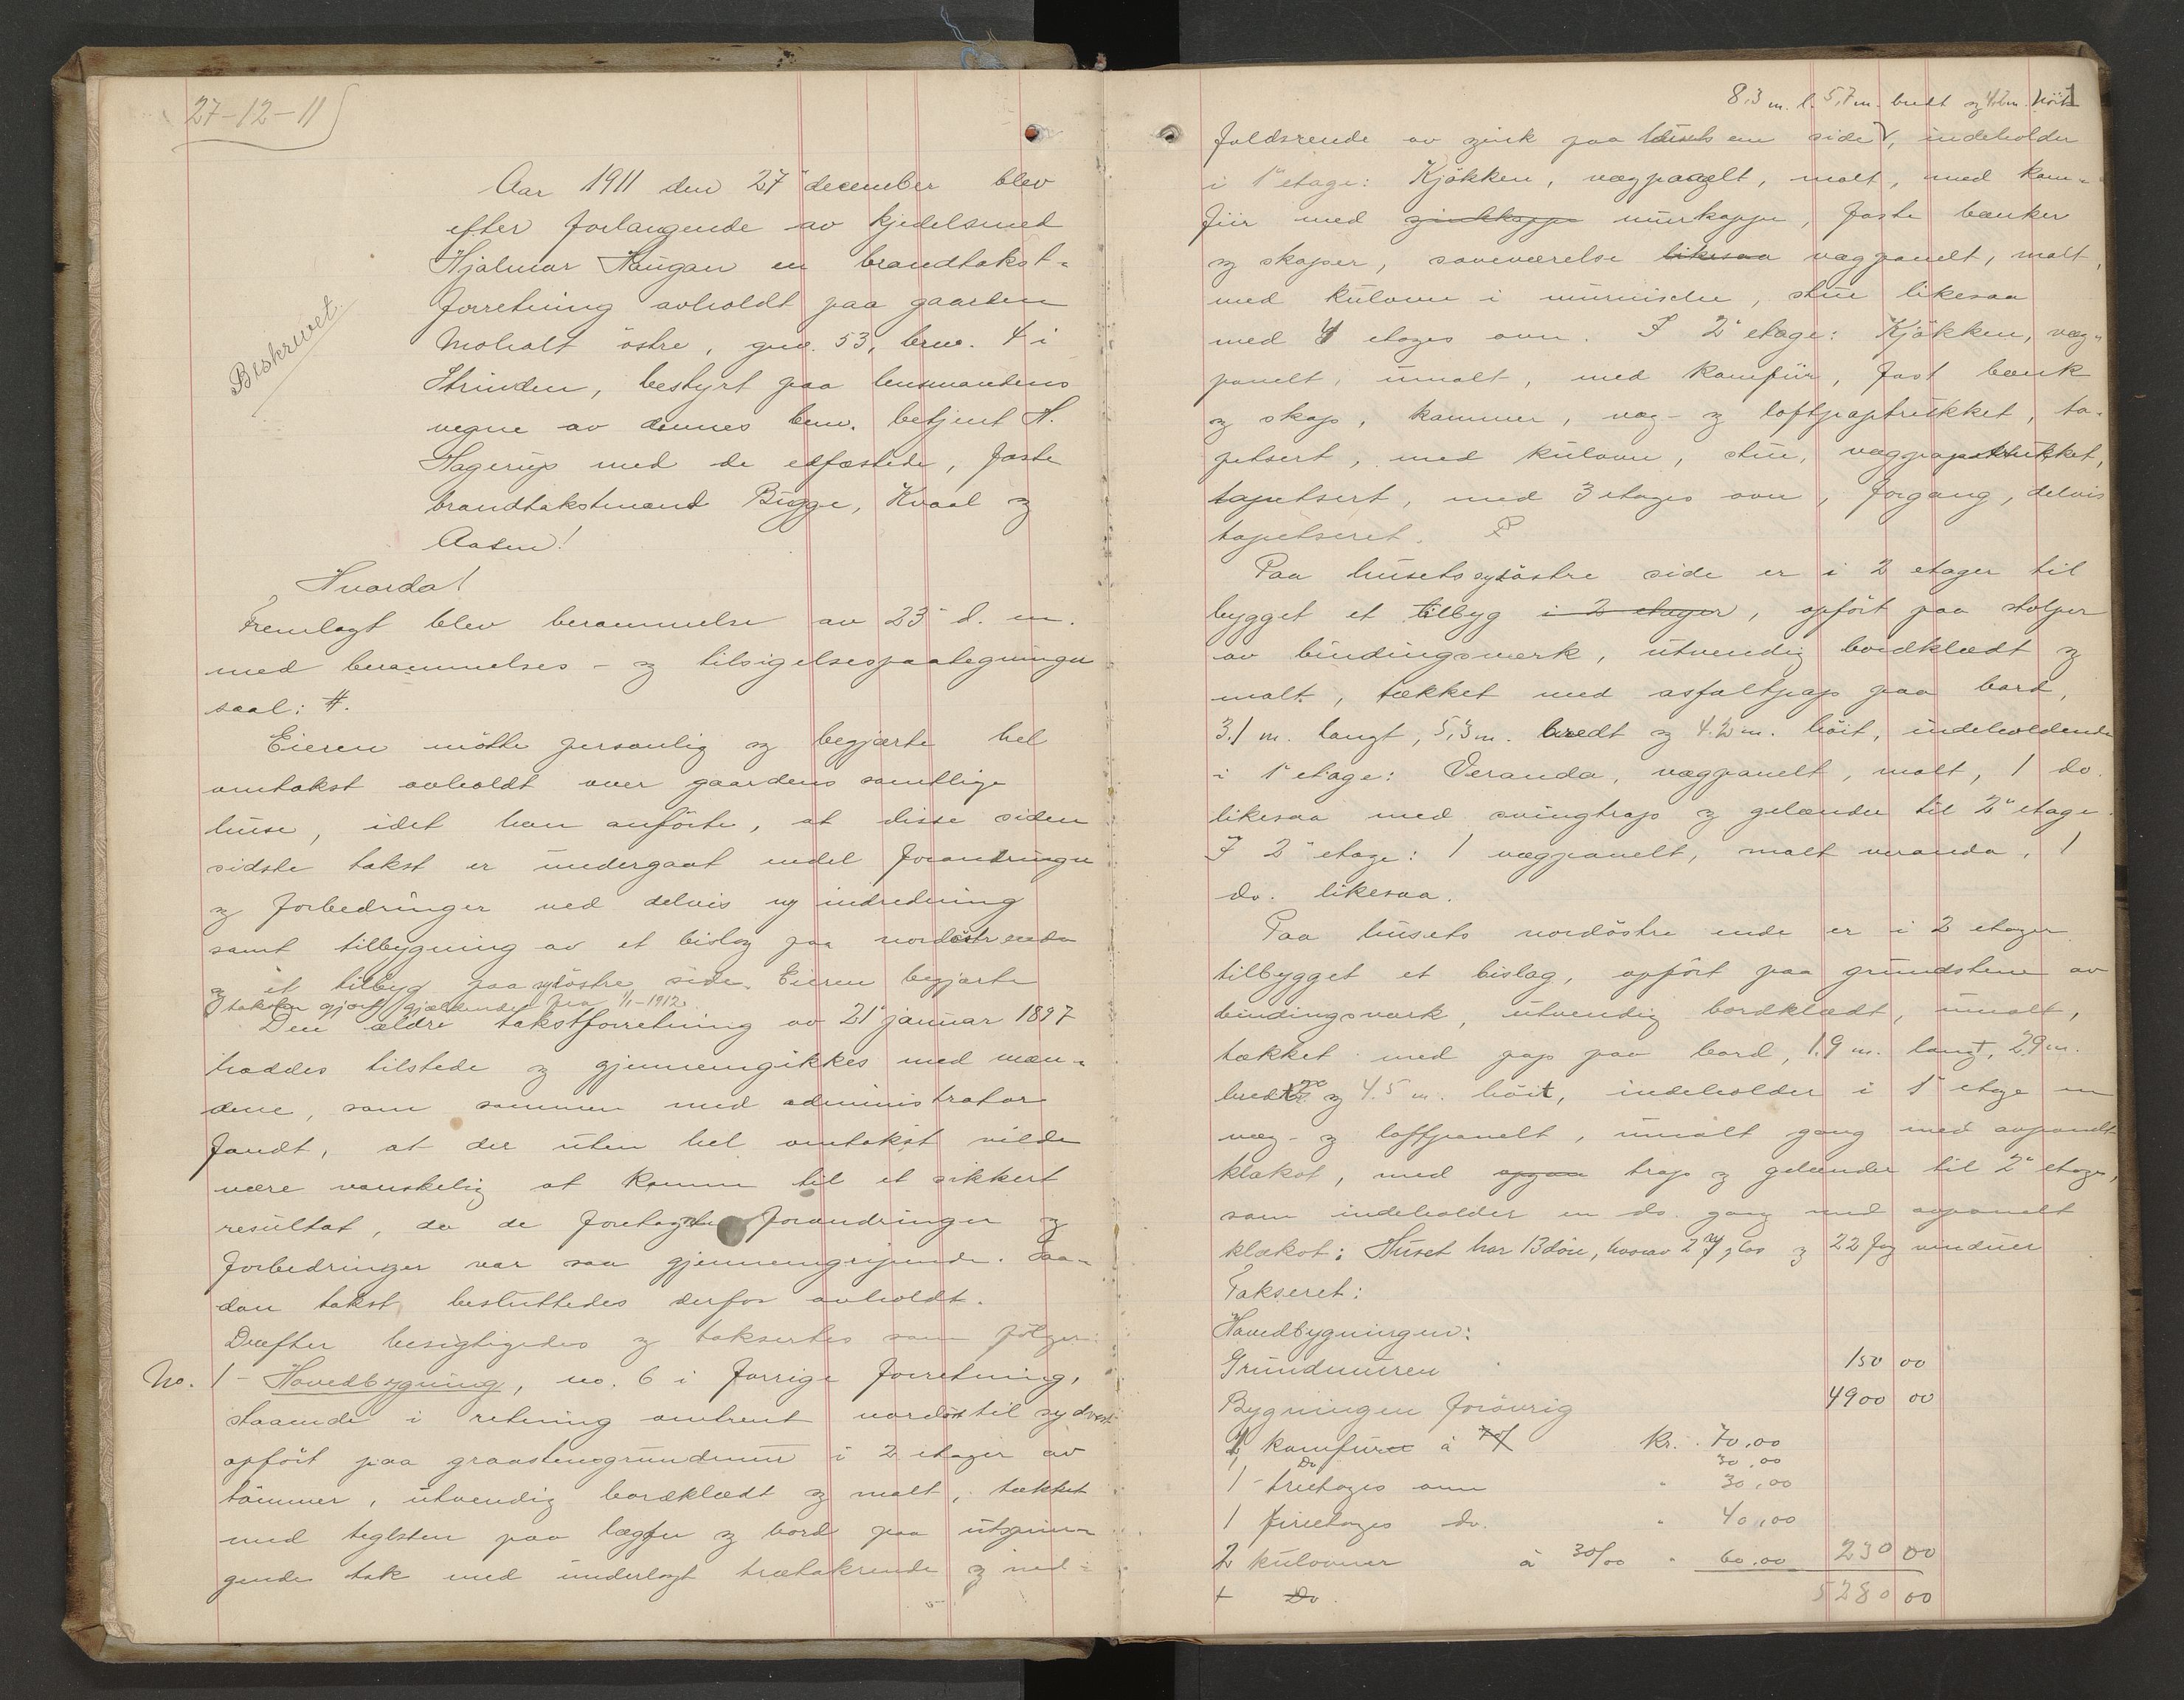 27-12-11
Aar 1911 den 27' december blev
efter forlangende av kjedelsmed
Hjalmar Haugan en brandtakst-
forretning avholdt paa gaarden
Moholt östre, gno. 53, brno. 4 i
Beskrevet
Strinden, bestyrt paa lensmandens
vegne av dennes bem. betjent H.
Hagerup med de edfæstede, faste
brandtakstmænd Bugge, Kvaal og
Aasen!
Hvorda!
Fremlagt blev berammelse av 23' d. m.
med berammelses- og tilsigelsespaategninger
saal: #.
Eieren mötte personlig og begjærte hel
omtakst avholdt over gaardens samtlige
huse, idet han anförte, at disse siden
sidste takst er undergaat endel forandringer
og forbedringer ved delvis ny indredning
samt tilbygning av et bislag paa nordöstre ende
og et tilbyg paa sydöstre side. Eieren begjærte
taksten gjort gjældende fra 1/1-1912.
Den ældre takstforretning av 21' januar 1897
haddes tilstede og gjennemgikkes med mæn-
dene, som sammen med administrator
fandt, at der uten hel omtakst vilde
være vanskelig at komme til et sikkert
resultat, da de foretagne forandringer og
forbedringer var saa gjennemgripende. Saa-
dan takst besluttedes derfor avholdt.
Derefter besigtigedes og taksertes som følger:
No. 1 - Hovedbygning, no. 6 i forrige forretning,
staaende i retning omtrent nordöst til sydvest
opfört paa graastensgrundmur i 2 etager av
tömmer, utvendig bordklædt og malt, tækket
med teglsten paa lægter og bord paa utsprin-
gende tak med underlagt trætakrende og ned-
1
8,3 m. l. 5,7 m. bredt og 4.2 m. höit
faldsrende av zink paa husets ene side, indeholder
i 1' etage: Kjökken, vægpanelt, malt, med kom-
fur med zinkkappe murkappe, faste bænker
og skaper, soveværelse likesaa vægpanelt, malt,
med kulovn i murnische, stue likesaa
med 4 etages ovn. I 2' etage: Kjökken, væg-
panelt, umalt, med komfur, fast bænk
og skap, kammer, væg- og loftpaptrukket, ta-
petsert, med kulovn, stue, vægpaptrukket,
tapetsert, med 3 etages ovn, forgang, delvis
tapetseret.
Paa husets sydöstre side er i 2 etager til
bygget et tilbyg i 2 etager, opfört paa stolper
av bindingsverk, utvendig bordklædt og
malt, tækket med asfaltpap paa bord,
3.1 m. langt, 5,3 m. bredt og 4.2 m. höit, indeholdende
i 1' etage: Veranda, vægpanelt, malt, 1 do.
likesaa med svingtrap og gelænder til 2' etage.
I 2' etage: 1 vægpanelt, malt veranda, 1
do. likesaa.
Paa husets nordöstre ende er i 2 etager
tilbygget et bislag, opfört paa grundstene av
bindingsverk, utvendig bordklædt, umalt,
tækket med pap paa bord, 1.9 m. langt, 2.9 m.
bredt og 4.5 m. höit, indeholder i 1' etage en
væg- og loftpanelt, umalt gang med avpanelt
klakot, med opgan trap og gelænder til 2' etage,
som indeholder en do. gang med avpanelt
klakot: Huset har 13 döre, hvorav 2 m/ glas og 22 fag vinduer
Takseret:
Hovedbygningen:
Grundmuren 150 00
Bygningen forövrig 4900 00
1 komfur à 70/ kr. 70,00
1 Do 30,00
1 - treetages ovn " 30,00
1 fireetages do. " 40,00
2 kulovner à 30/00 " 60,00 230 00
+ Do 5280 00